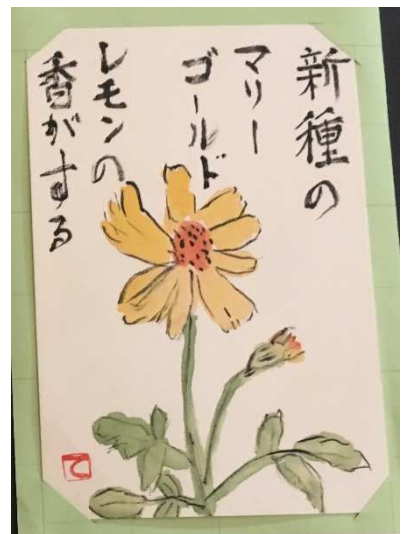 新種の
マリー
ゴールド
レモンの
香がする
て